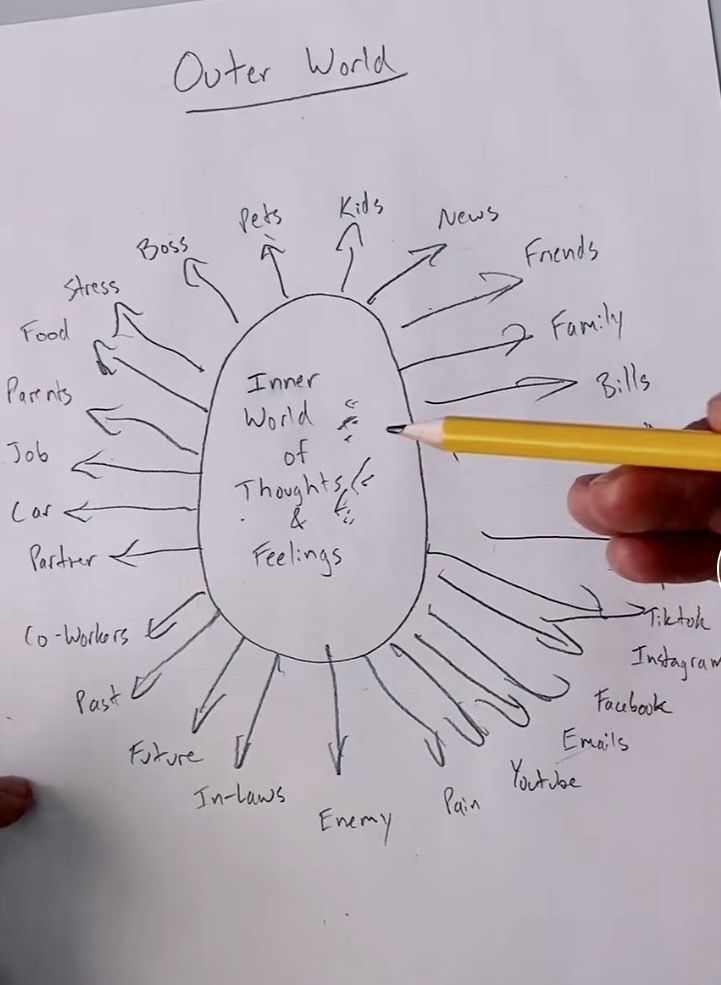 Outer World
Kids
Pets
News
Boss
Friends
Stress
Food
Family
Parents
Bills
Inner
World
of
Thoughts
&
Feelings
Job
Car
Partner
Co-Workers
Tiktok
Instagram
Past
Facebook
Future
Emails
In-Laws
Youtube
Pain
Enemy